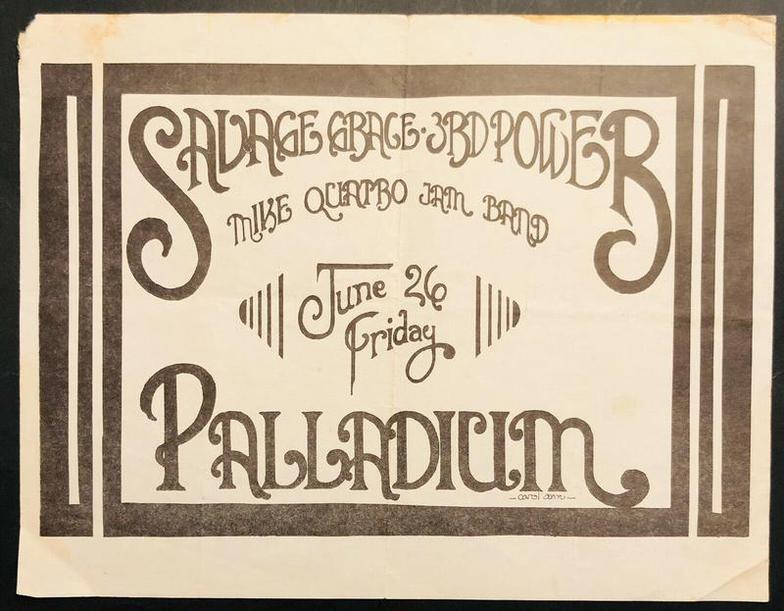 SAVAGE GRACE · 3RD POWER
MIKE QUATRO JAM BAND
June 26
Friday
PALLADIUM
carol ann